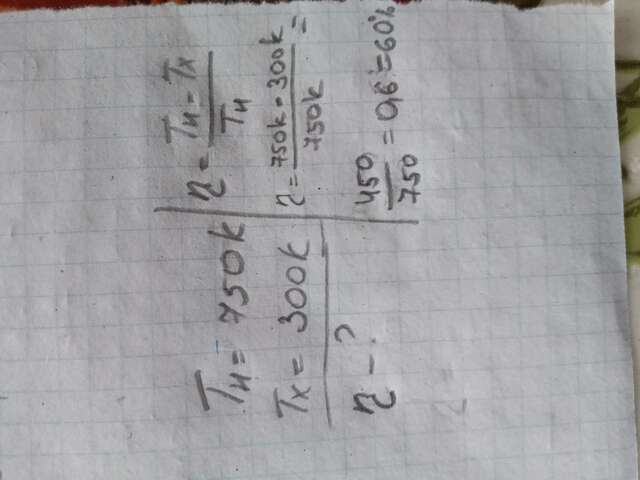 Tн = 750k
Tx = 300k
η - ?
η = Tн = Tx / Tн
η = 750k = 300k / 750k =
450 / 750 = 0,6 = 60%